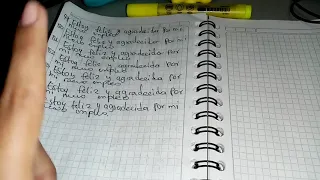 Estoy feliz y agradecida por mi
nuevo empleo
Estoy feliz y agradecida por mi
nuevo empleo
Estoy feliz y agradecida por
mi nuevo empleo
Estoy feliz y agradecida por
mi nuevo empleo
Estoy feliz y agradecida por
mi nuevo empleo
Estoy feliz y agradecida por
mi nuevo empleo
Estoy feliz y agradecida por mi
nuevo empleo